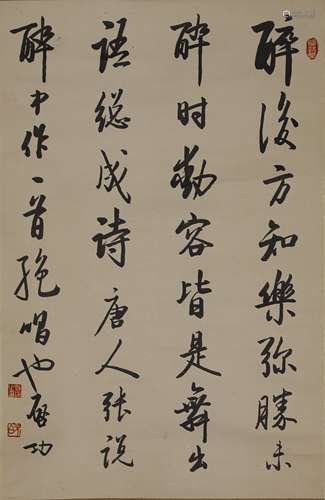 醉後方知樂弥勝未
醉时動容皆是舞出
语総成诗唐人张说
醉中作一首绝唱也启功